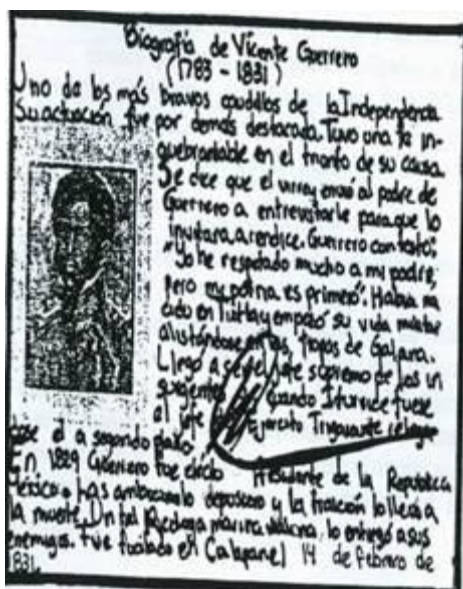 Biografía de Vicente Guerrero
(1783 - 1831)
Uno de los más bravos caudillos de la Independencia
Su actuación fue por demás destacada. Tuvo una fe in-
quebrantable en el triunfo de su causa.
Se dice que el virrey envió al padre de
Guerrero a entrevistarle para que lo
invitara a rendice. Guerrero contestó:
"Yo he respetado mucho a mi padre,
pero mi patria es primero". Habia na
cido en Tixtla y empezó su vida militar
alistándose en las tropas de Galeana.
Llego a ser el jefe supremo de los in
surgentes cuando Iturvide fuese
el jefe Ejercito Trigarante
ose el a segundo plano
En 1829 Guerrero fue electo Presidente de la Republica
México. Las lo llevó a
la muerte. Un tal lo entregó a sus
enemigos. Fue fusilado en 14 de febrero de
1831.